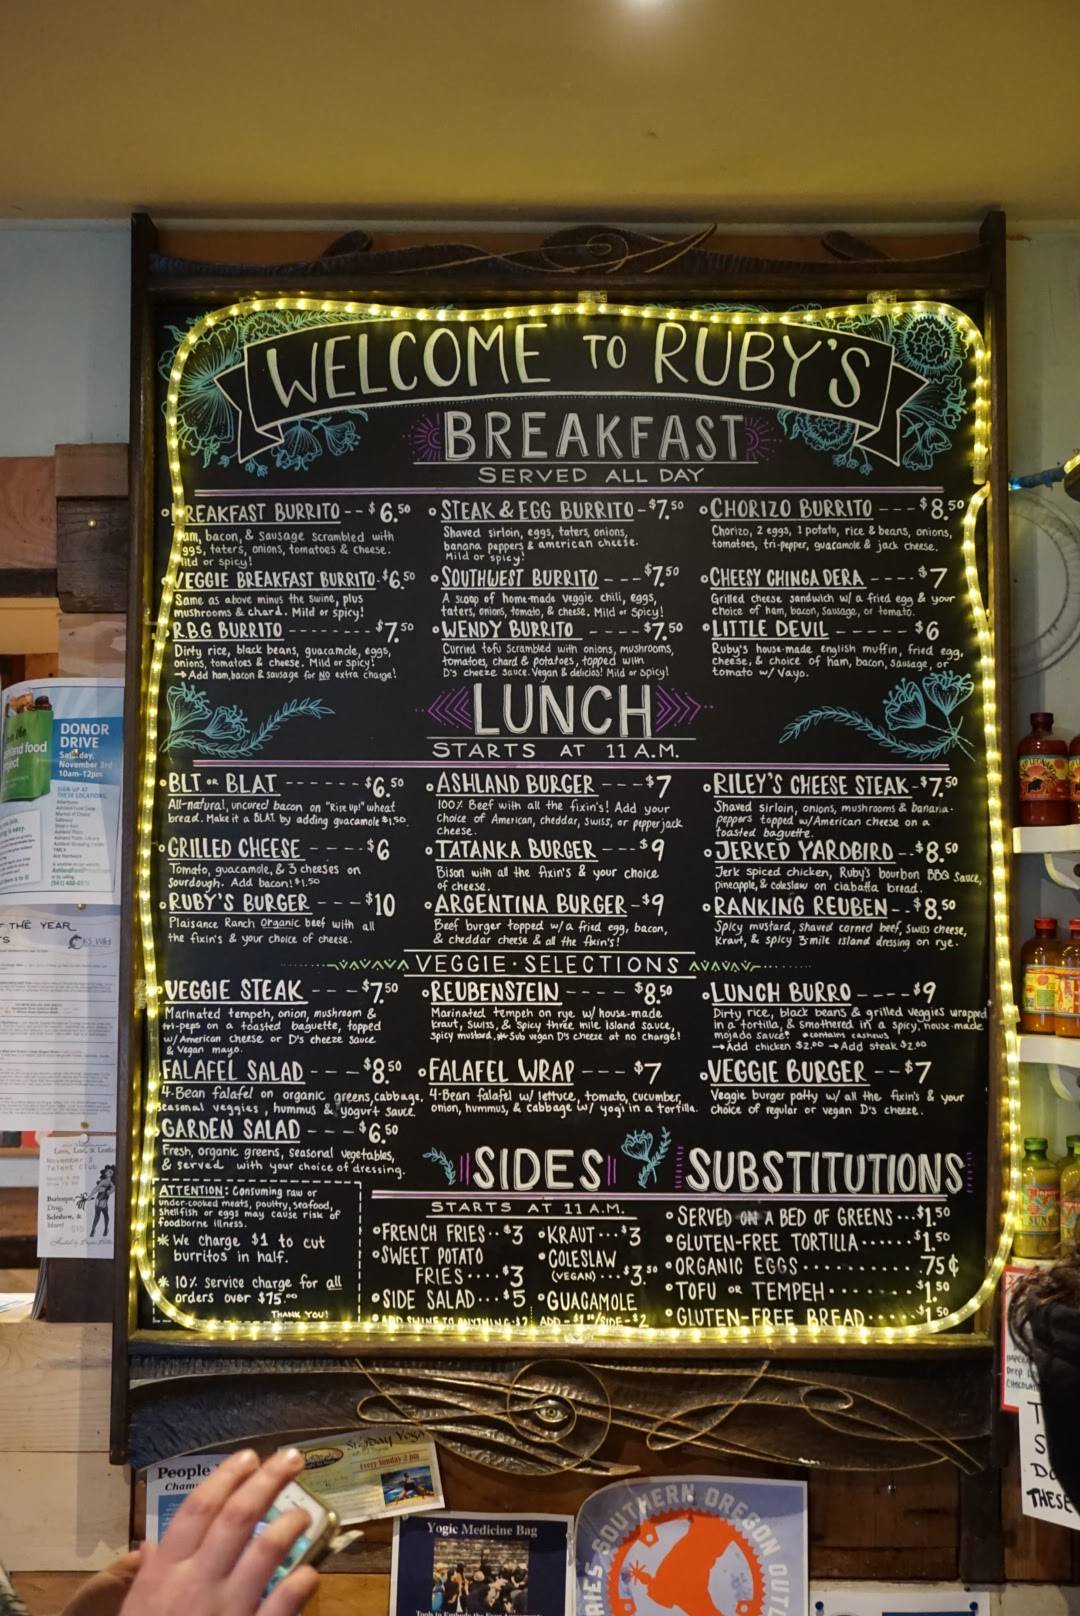 WELCOME TO RUBY'S
BREAKFAST
SERVED ALL DAY
BREAKFAST BURRITO -- $6.50
Ham, bacon, & Sausage scrambled with
eggs, taters, onions, tomatoes & cheese.
Mild or spicy!
VEGGIE BREAKFAST BURRITO - $6.50
Same as above minus the swine, plus
mushrooms & chard. Mild or spicy!
R.B.G BURRITO -------- $7.50
Dirty rice, black beans, guacamole, eggs,
onions, tomatoes & cheese. Mild or spicy!
→ Add ham, bacon & sausage for NO extra charge!
STEAK & EGG BURRITO - $7.50
Shaved sirloin, eggs, taters, onions,
banana peppers & american cheese.
Mild or spicy!
SOUTHWEST BURRITO --- $7.50
A scoop of home-made veggie chili, eggs,
taters, onions, tomato, & cheese. Mild or Spicy!
WENDY BURRITO ---- $7.50
Curried tofu Scrambled with onions, mushrooms,
tomatoes, chard & potatoes, topped with
D's cheeze sauce. Vegan & delicios! Mild or Spicy!
CHORIZO BURRITO --- $8.50
Chorizo, 2 eggs, 1 potato, rice & beans, onions,
tomatoes, tri-pepper, guacamole & jack cheese.
CHEESY CHINGA DERA ---- $7
Grilled cheese sandwich w/ a fried egg & your
choice of ham, bacon, Sausage, or tomato.
LITTLE DEVIL ------ $6
Ruby's house-made english muffin, fried egg,
cheese, & choice of ham, bacon, sausage, or
tomato w/ Vayo.
LUNCH
STARTS AT 11 A.M.
BLT OR BLAT ----- $6.50
All-natural, uncured bacon on "Rise Up!" wheat
bread. Make it a BLAT by adding guacamole $1.50.
GRILLED CHEESE --- $6
Tomato, guacamole, & 3 cheeses on
Sourdough. Add bacon! $1.50
RUBY'S BURGER --- $10
Plaisance Ranch Organic beef with all
the fixin's & your choice of cheese.
ASHLAND BURGER --- $7
100% Beef with all the fixin's! Add your
choice of American, cheddar, Swiss, or pepperjack
cheese.
TATANKA BURGER --- $9
Bison with all the fixin's & your choice
of cheese.
ARGENTINA BURGER - $9
Beef burger topped w/ a fried egg, bacon,
& cheddar cheese & all the fixin's!
RILEY'S CHEESE STEAK - $7.50
Shaved sirloin, onions, mushrooms & banana-
peppers topped w/ American cheese on a
toasted baguette.
JERKED YARDBIRD -- $8.50
Jerk spiced chicken, Ruby's bourbon BBQ Sauce,
pineapple, & coleslaw on ciabatta bread.
RANKING REUBEN -- $8.50
Spicy mustard, shaved corned beef, Swiss cheese,
Kraut, & spicy 3 mile island dressing on rye.
VEGGIE · SELECTIONS
VEGGIE STEAK --- $7.50
Marinated tempeh, onion, mushroom &
tri-peps on a toasted baguette, topped
w/ American cheese or D's cheeze sauce
& Vegan mayo.
FALAFEL SALAD --- $8.50
4-Bean falafel on organic greens, cabbage,
seasonal veggies, hummus & yogurt sauce.
GARDEN SALAD --- $6.50
Fresh, organic greens, seasonal vegetables,
& served with your choice of dressing.
REUBENSTEIN ---- $8.50
Marinated tempeh on rye w/ house-made
kraut, Swiss, & Spicy three mile Island sauce,
Spicy mustard. *Sub vegan D's cheeze at no charge!
FALAFEL WRAP --- $7
4-Bean falafel w/ lettuce, tomato, cucumber,
onion, hummus, & cabbage w/ yogi in a tortilla.
LUNCH BURRO ---- $9
Dirty rice, black beans & grilled veggies wrapped
in a tortilla, & smothered in a spicy, house-made
mojado sauce! *contains cashews
→ Add chicken $2.00 → Add steak $2.00
VEGGIE BURGER -- $7
Veggie burger patty w/ all the fixin's & your
choice of regular or vegan D's cheeze.
ATTENTION: Consuming raw or
under-cooked meats, poultry, seafood,
shellfish or eggs may cause risk of
foodborne illness.
* We charge $1 to cut
burritos in half.
* 10% service charge for all
orders over $75.00
THANK YOU!
SIDES
STARTS AT 11 A.M.
FRENCH FRIES .. $3
SWEET POTATO
FRIES .... $3
SIDE SALAD ... $5
ADD SWINE TO ANYTHING - $2
KRAUT ... $3
COLESLAW
(VEGAN) ... $3.50
GUACAMOLE
ADD - $1 /SIDE - $2
SUBSTITUTIONS
SERVED ON A BED OF GREENS ... $1.50
GLUTEN-FREE TORTILLA ...... $1.50
ORGANIC EGGS ........... .75¢
TOFU OR TEMPEH ........ $1.50
GLUTEN-FREE BREAD ..... $1.50
DONOR
DRIVE
Saturday,
November 3rd
10am-12pm
SIGN UP AT
THESE LOCATIONS
THE YEAR
November 3
Talent Club
Burlesque,
Drag,
Sideshow, &
More!
People
Sunday Yoga
Every Sunday 2 pm
Yogic Medicine Bag
SOUTHERN OREGON
THESE